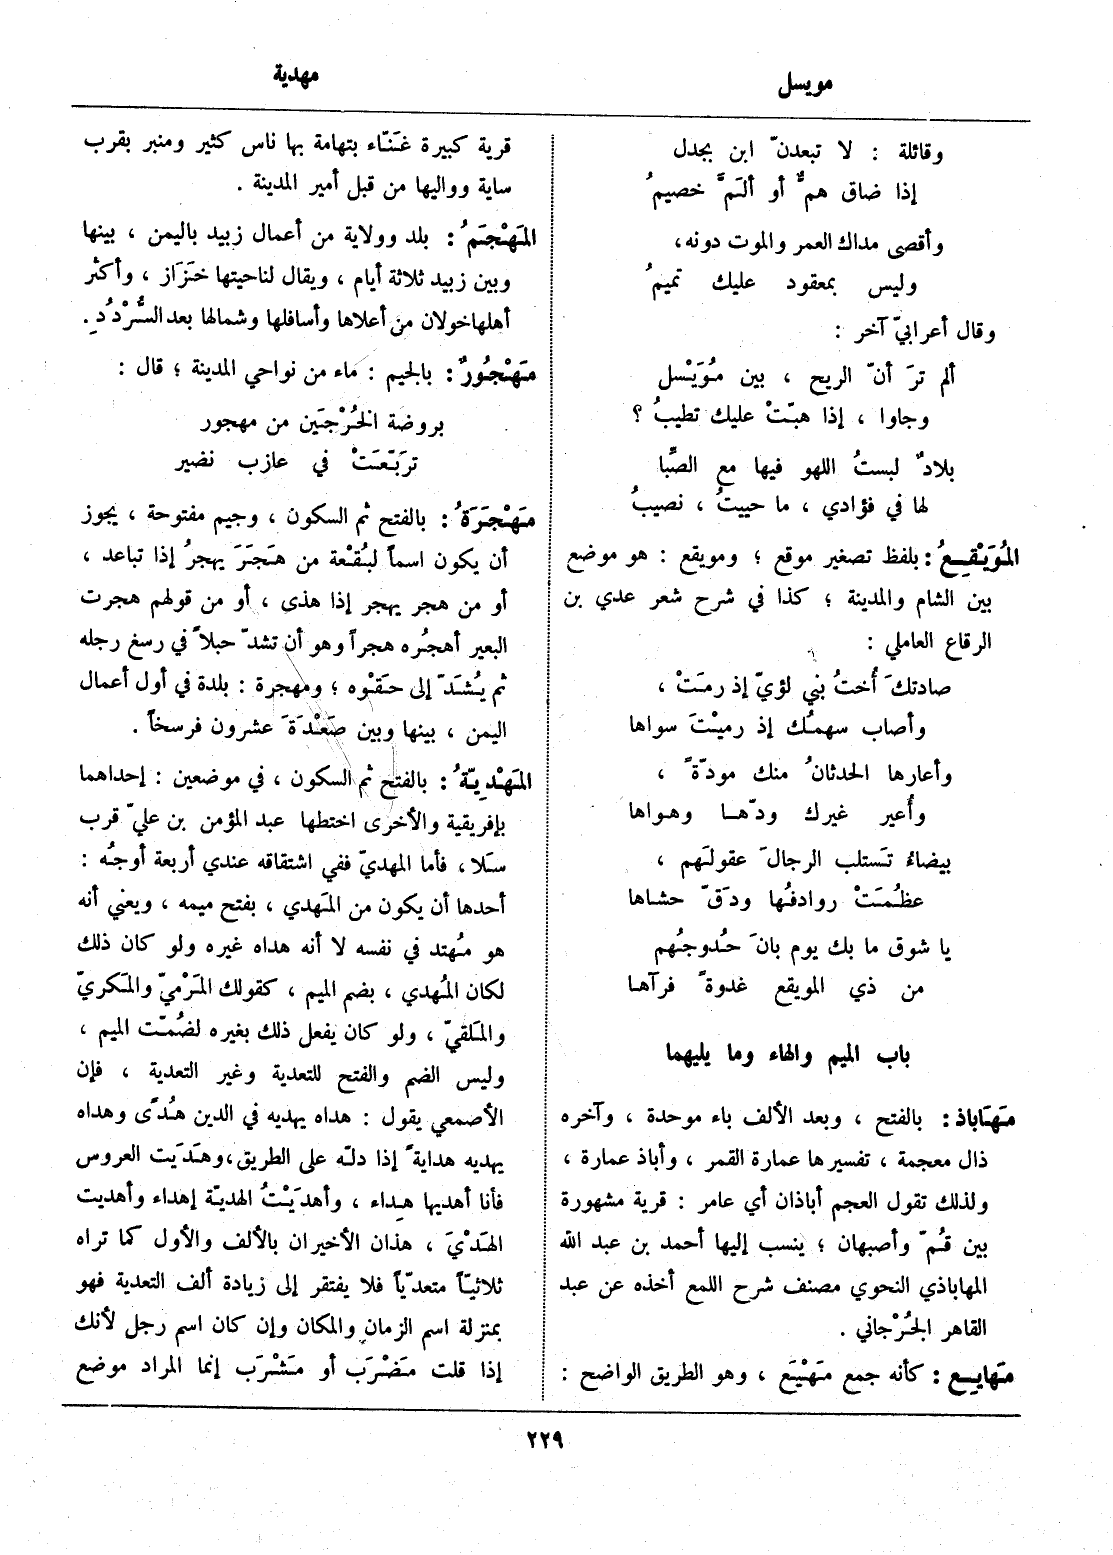 مويسل
مهدية
وقائلة : لا تبعدنّ ابن بجدل
إذا ضاق همٌّ أو ألَمَّ خصيمُ
وأقصى مداك العمر والموت دونه،
وليس بمعقود عليك تميمُ
وقال أعرابيّ آخر :
ألم ترَ أنّ الريح ، بين مُوَيْسل
وجاوا ، إذا هبّتْ عليك تطيبُ ؟
بلادٌ لبستُ اللهو فيها مع الصِّبا
لها في فؤادي ، ما حييتُ ، نصيبُ
المُوَيْقِعُ : بلفظ تصغير موقع ؛ ومويقع : هو موضع
بين الشام والمدينة ؛ كذا في شرح شعر عدي بن
الرقاع العاملي :
صادتكَ أُختُ بني لؤيّ إذ رمَتْ ،
وأصاب سهمُك إذ رميْتَ سواها
وأعارها الحدثانُ منك مودّةً ،
وأُعير غيرك ودّها وهواها
بيضاءُ تَستلب الرجالَ عقولَهم ،
عظُمَتْ روادفُها ودَقّ حشاها
يا شوق ما بك يوم بانَ حُدوجُهم
من ذي المويقع غدوةً فرآها
باب الميم والهاء وما يليهما
مَهَاباذ : بالفتح ، وبعد الألف باء موحدة ، وآخره
ذال معجمة ، تفسيرها عمارة القمر ، وأباذ عمارة ،
ولذلك تقول العجم أباذان أي عامر : قرية مشهورة
بين قُمّ وأصبهان ؛ ينسب إليها أحمد بن عبد الله
المهاباذي النحوي مصنف شرح اللمع أخذه عن عبد
القاهر الجُرْجاني .
مَهايِع : كأنه جمع مَهْيَع ، وهو الطريق الواضح :
قرية كبيرة غَنّاء بتهامة بها ناس كثير ومنبر بقرب
ساية وواليها من قبل أمير المدينة .
المَهْجَمُ : بلد وولاية من أعمال زبيد باليمن ، بينها
وبين زبيد ثلاثة أيام ، ويقال لناحيتها خَزَاز ، وأكثر
أهلها خولان من أعلاها وأسافلها وشمالها بعد السُّرْدُدِ .
مَهْجُورٌ : بالجيم : ماء من نواحي المدينة ؛ قال :
بروضة الخُرْجَين من مهجور
تربّعَتْ في عازب نضير
مَهْجَرَةُ : بالفتح ثم السكون ، وجيم مفتوحة ، يجوز
أن يكون اسماً لبُقْعة من هَجَرَ يهجرُ إذا تباعد ،
أو من هجر يهجر إذا هذى ، أو من قولهم هجرت
البعير أهجُره هجراً وهو أن تشدّ حبلاً في رسغ رجله
ثم يُشَدّ إلى حَقْوه ؛ ومهجرة : بلدة في أول أعمال
اليمن ، بينها وبين صَعْدَةَ عشرون فرسخاً .
المَهْدِيّةُ : بالفتح ثم السكون ، في موضعين : إحداهما
بإفريقية والأخرى اختطها عبد المؤمن بن عليّ قرب
سَلا ، فأما المهديّ ففي اشتقاقه عندي أربعة أوجُه :
أحدها أن يكون من المَهدي ، بفتح ميمه ، ويعني أنه
هو مُهتد في نفسه لا أنه هداه غيره ولو كان ذلك
لكان المُهدي ، بضم الميم ، كقولك المَرْميّ والمَكريّ
والمَلقيّ ، ولو كان يفعل ذلك بغيره لضُمّت الميم ،
وليس الضم والفتح للتعدية وغير التعدية ، فإن
الأصمعي يقول : هداه يهديه في الدين هُدًى وهداه
يهديه هدايةً إذا دلّه على الطريق ، وهَدَيت العروس
فأنا أهديها هِداء ، وأهدَيْتُ الهديّة إهداء وأهديت
الهَدْيَ ، هذان الأخيران بالألف والأول كما تراه
ثلاثيّاً متعدّياً فلا يفتقر إلى زيادة ألف التعدية فهو
بمنزلة اسم الزمان والمكان وإن كان اسم رجل لأنك
إذا قلت مَضْرَب أو مَشْرَب إنما المراد موضع
٢٢٩